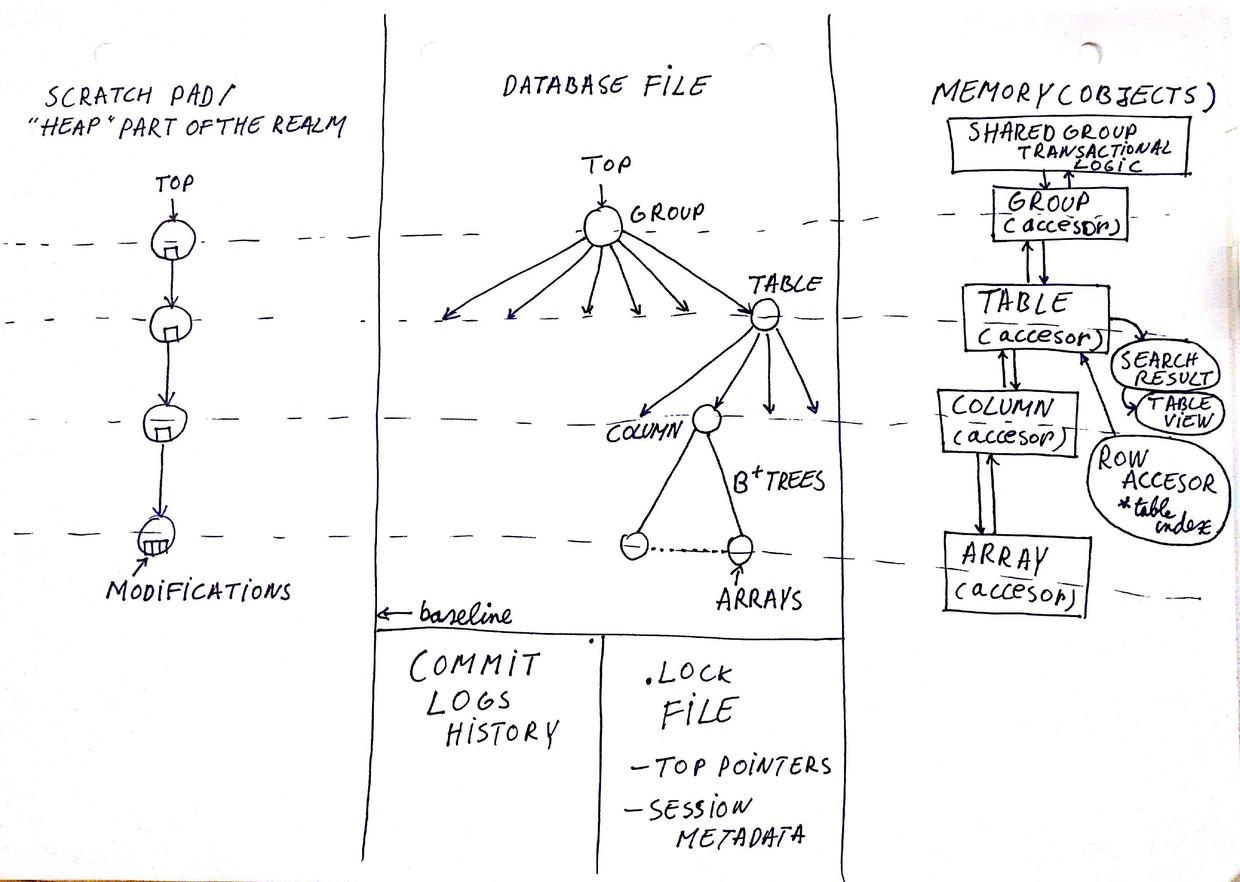 SCRATCH PAD/
"HEAP" PART OF THE REALM
TOP
MODIFICATIONS
DATABASE FILE
TOP
GROUP
TABLE
COLUMN
B+ TREES
ARRAYS
← baseline
COMMIT
LOGS
HISTORY
.LOCK
FILE
- TOP POINTERS
- SESSION
METADATA
MEMORY (OBJECTS)
SHARED GROUP
TRANSACTIONAL
LOGIC
GROUP
(accesor)
TABLE
(accesor)
SEARCH
RESULT
TABLE
VIEW
COLUMN
(accesor)
ROW
ACCESOR
*table
index
ARRAY
(accesor)